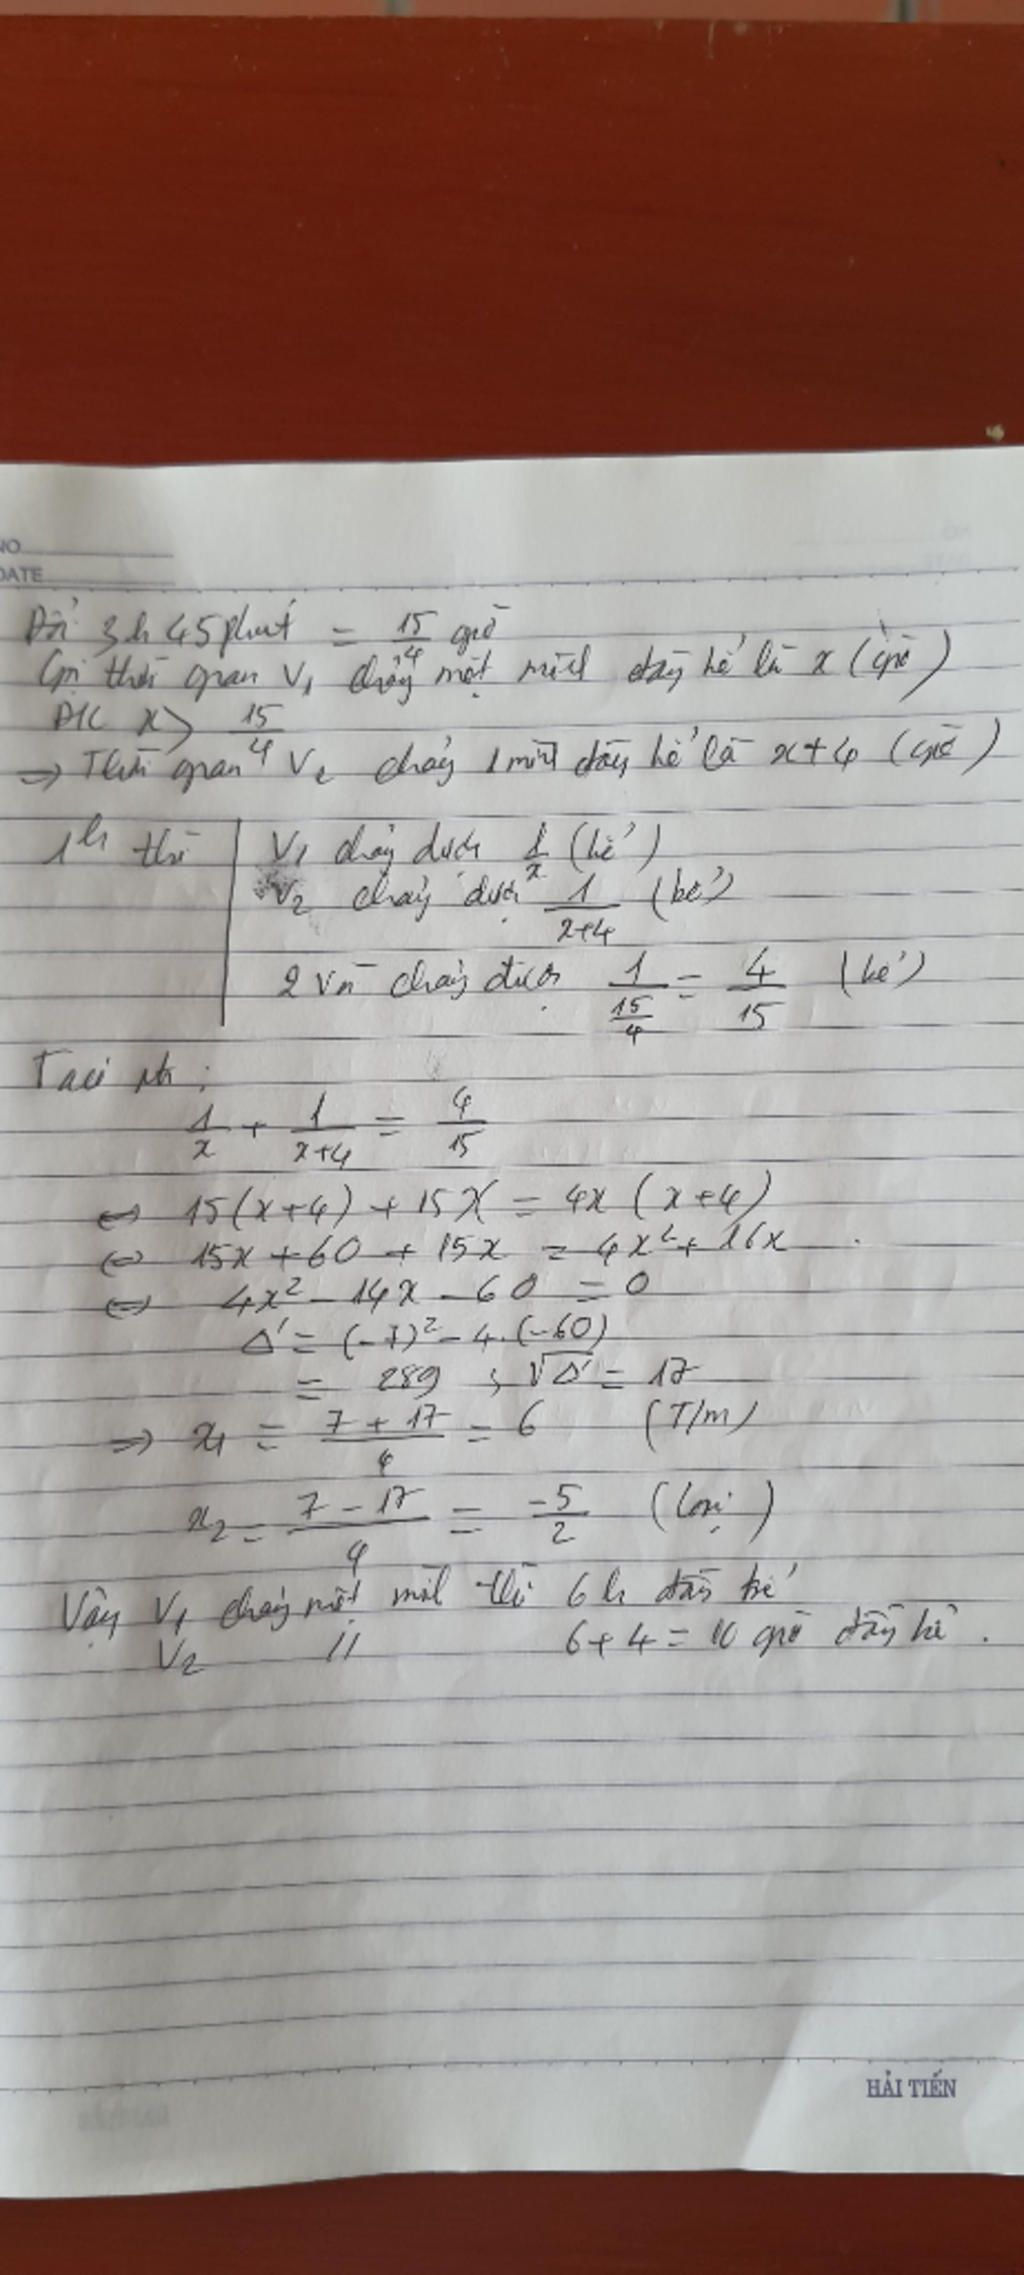 NO
DATE
Đổi 3h 45 phút = 15/4 giờ
Gọi thời gian V1 chảy một mình đầy bể là x (giờ)
ĐK x > 15/4
=> Thời gian V2 chảy 1 mình đầy bể là x+4 (giờ)
1h thì | V1 chảy được 1/x (bể)
V2 chảy được 1/(x+4) (bể)
2 vòi chảy được 1/(15/4) = 4/15 (bể)
Ta có pt:
1/x + 1/(x+4) = 4/15
<=> 15(x+4) + 15x = 4x (x+4)
<=> 15x + 60 + 15x = 4x² + 16x
<=> 4x² - 14x - 60 = 0
Δ' = (-7)² - 4.(-60)
= 289 ; √Δ' = 17
=> x1 = (7 + 17)/4 = 6 (T/m)
x2 = (7 - 17)/4 = -5/2 (loại)
Vậy V1 chảy một mình thì 6h đầy bể
V2 // 6+4 = 10 giờ đầy bể.
HẢI TIẾN